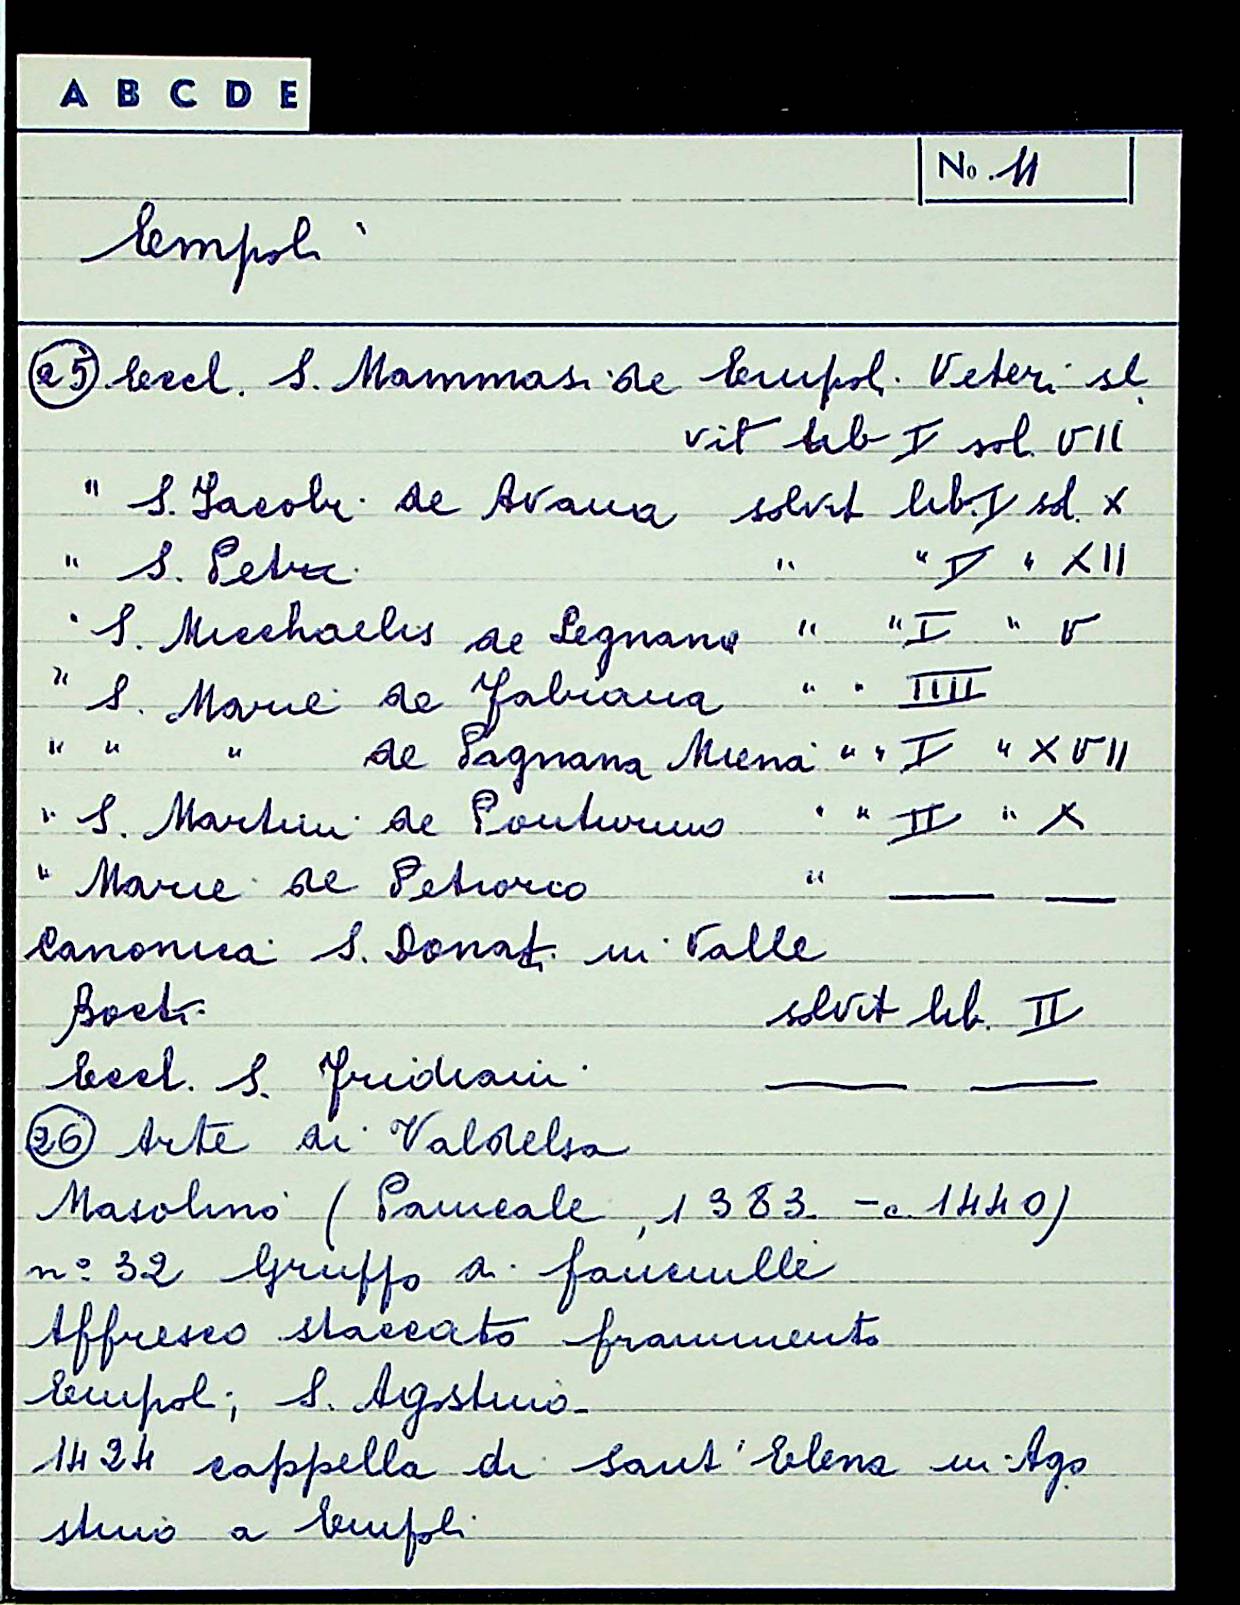 A B C D E
No. 11
Empoli
25 Eccl. S. Mammasi de Empoli Veteri sl
vit lib I sol. VII
" S. Jacobi de Avana solvit lib. I sol. X
" S. Petri " " I " XII
" S. Micchaelis de Legnano " " I " V
" S. Marie de Fabiana " " IIII
" " " de Pagnana Miena " " I " XVII
" S. Martini de Ponturmo " " II " X
" Marie de Petrorco " — —
Canonica S. Donati in Valle
Boeti solvit lib. II
Eccl. S. Fridiani — —
26 Arte di Valdelsa
Masolino (Panicale, 1383 - c. 1440)
n° 32 Gruppo di fanciulle
Affresco staccato frammento
Empoli, S. Agostino -
1424 cappella di Sant'Elena in Ago
stino a Empoli